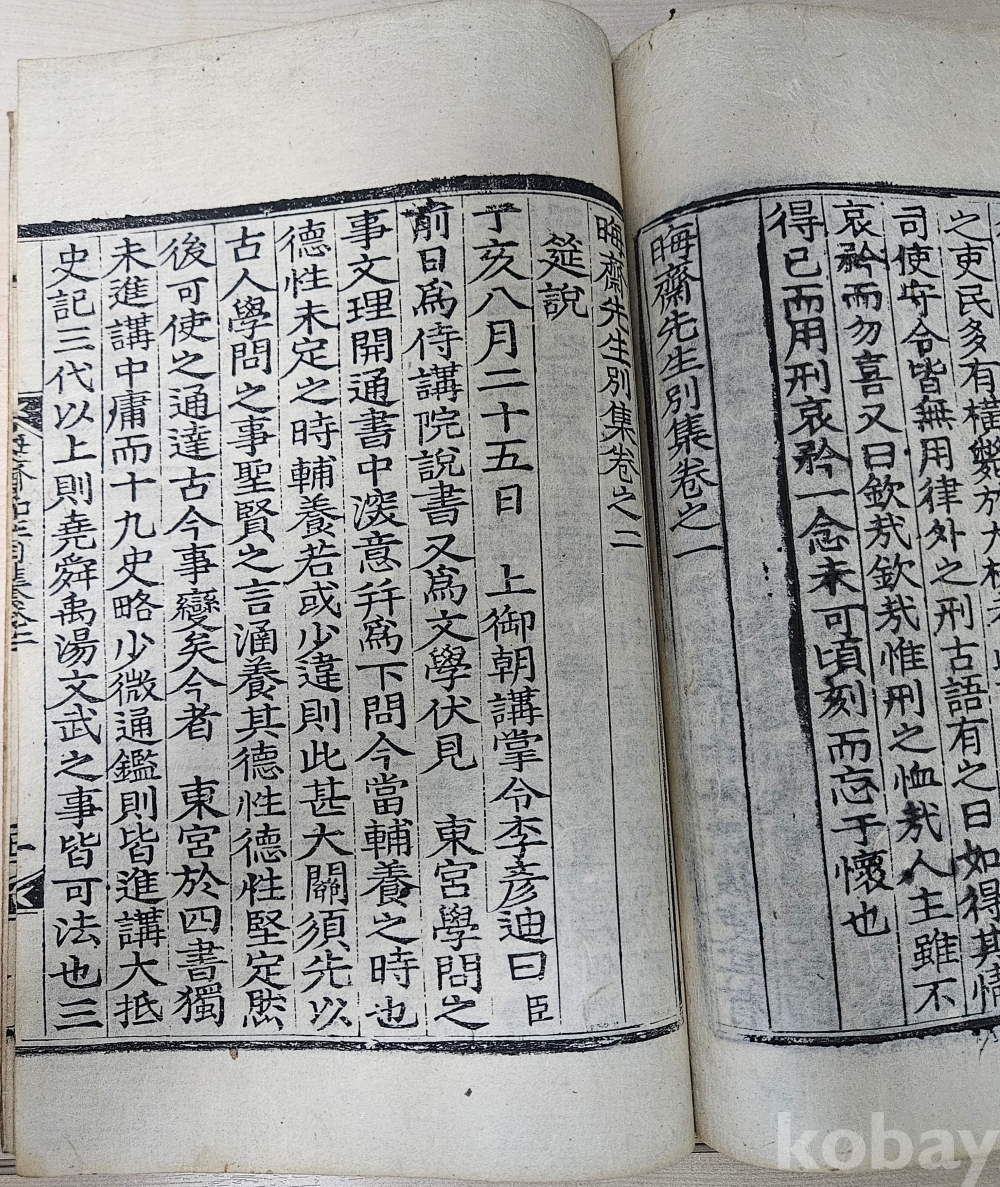 之吏民多有橫斃
司使守令皆無用律外之刑古語有之曰如得其情
哀矜而勿喜又曰欽哉欽哉惟刑之恤哉人主雖不
得已而用刑哀矜一念未可頃刻而忘于懷也
晦齋先生別集卷之一
晦齋先生別集卷之二
筵說
丁亥八月二十五日 上御朝講掌令李彥迪曰臣
前日爲侍講院說書又爲文學伏見 東宮學問之
事文理開通書中深意幷爲下問今當輔養之時也
德性未定之時輔養若或少違則此甚大關須先以
古人學問之事聖賢之言涵養其德性德性堅定然
後可使之通達古今事變矣今者 東宮於四書獨
未進講中庸而十九史略少微通鑑則皆進講大抵
史記三代以上則堯舜禹湯文武之事皆可法也三
kobay